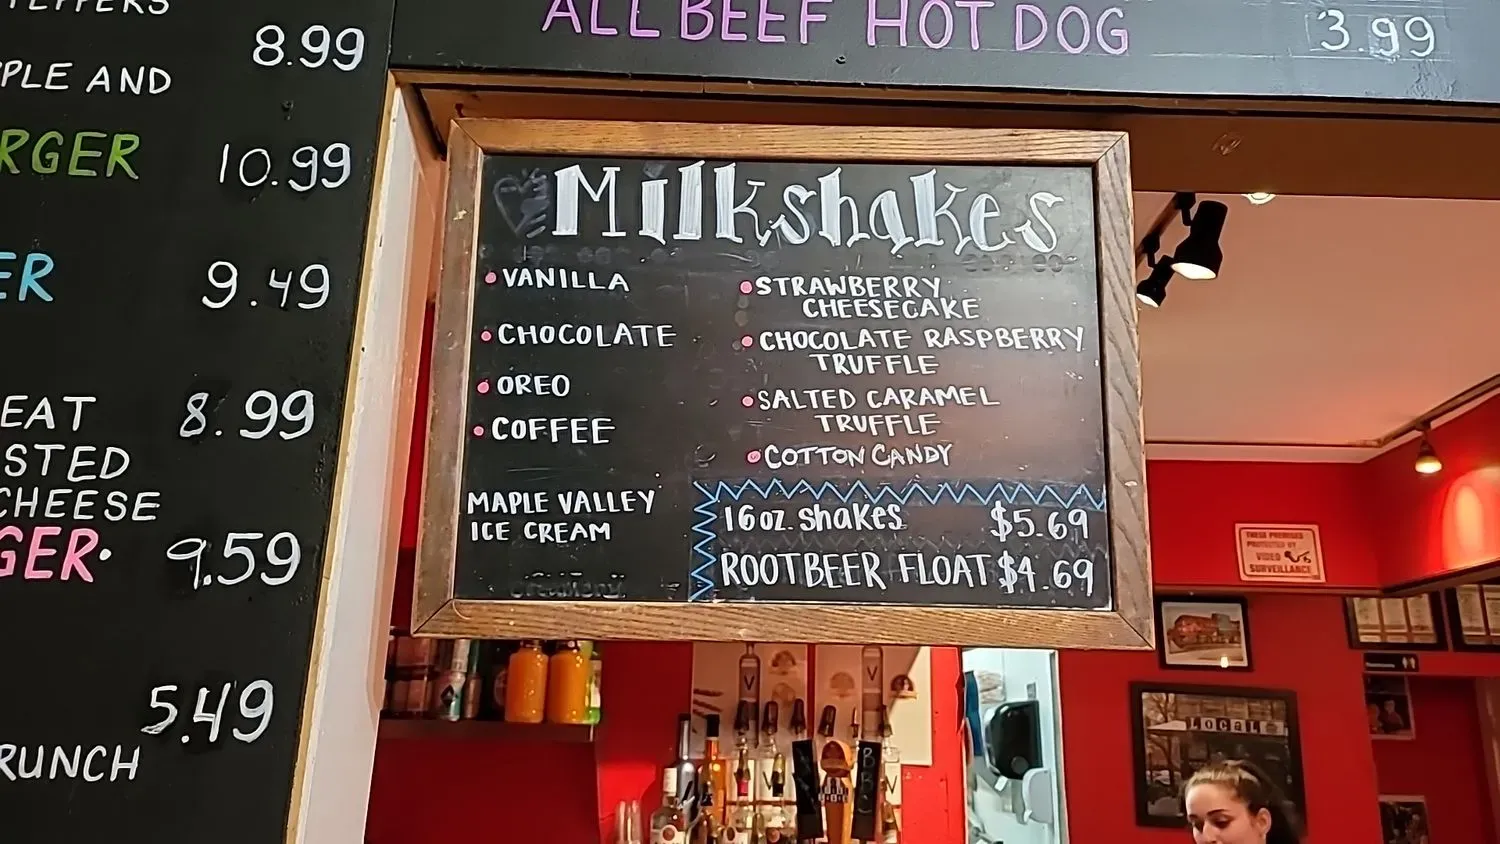 ALL BEEF HOT DOG 3.99
8.99
AND
10.99
9.49
8.99
CHEESE
9.59
5.49
Milkshakes
• VANILLA
• CHOCOLATE
• OREO
• COFFEE
MAPLE VALLEY
ICE CREAM
• STRAWBERRY
CHEESECAKE
• CHOCOLATE RASPBERRY
TRUFFLE
• SALTED CARAMEL
TRUFFLE
• COTTON CANDY
16 oz. shakes $5.69
ROOTBEER FLOAT $4.69
THESE PREMISES
PROTECTED BY
VIDEO
SURVEILLANCE
Local